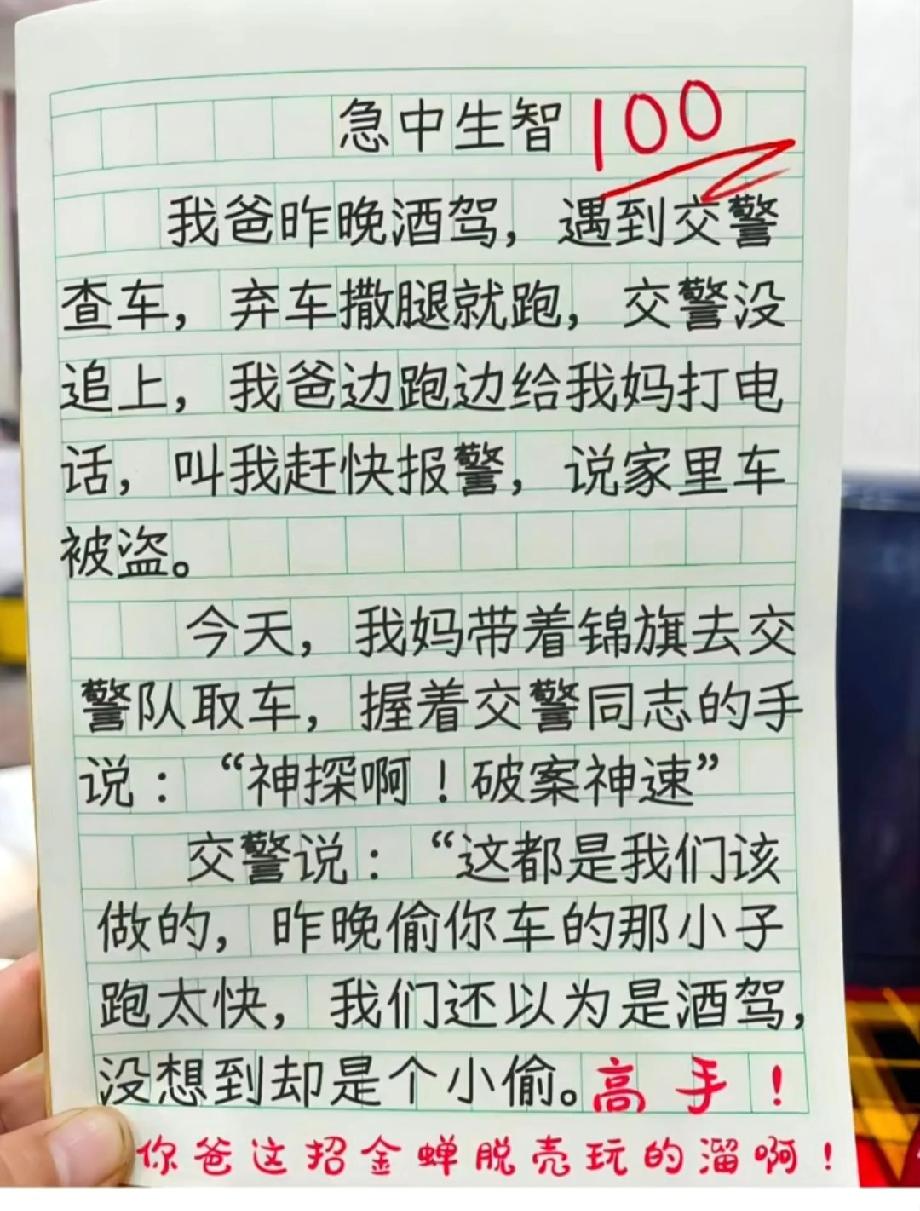 急中生智 100
我爸昨晚酒驾，遇到交警
查车，弃车撒腿就跑，交警没
追上，我爸边跑边给我妈打电
话，叫我赶快报警，说家里车
被盗。
今天，我妈带着锦旗去交
警队取车，握着交警同志的手
说：“神探啊！破案神速”
交警说：“这都是我们该
做的，昨晚偷你车的那小子
跑太快，我们还以为是酒驾，
没想到却是个小偷。高手！
你爸这招金蝉脱壳玩的溜啊！